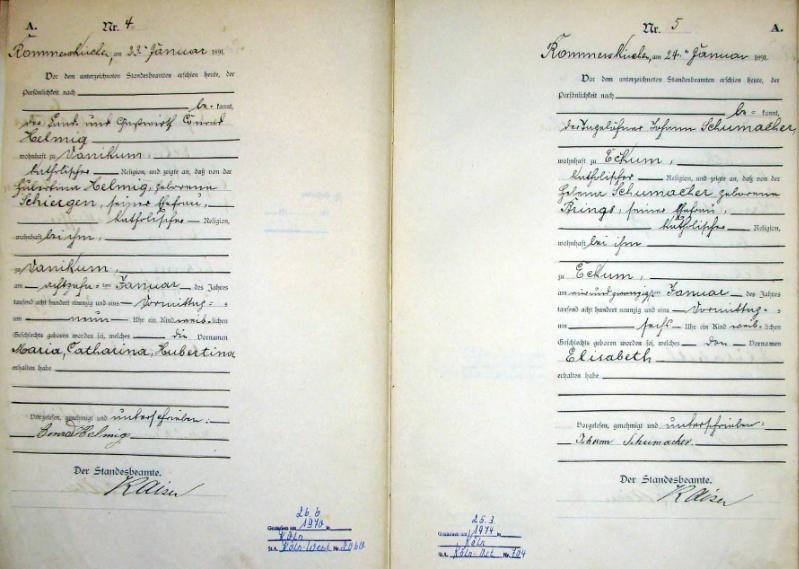 A.
Nr. 4
Rommerskirchen, am 23ten Januar 1891.
Vor dem unterzeichneten Standesbeamten erschien heute, der
Persönlichkeit nach
be- kannt,
der Land- und Gastwirth Conrad
Helmig
wohnhaft zu Vanikum,
katholischer Religion, und zeigte an, daß von der
Helmig, geborenen
Schiergen, seiner Ehefrau,
katholischer Religion,
wohnhaft bei ihm,
zu Vanikum,
am achtzehnten Januar des Jahres
tausend acht hundert neunzig und eins Vormittags
um neun Uhr ein Kind weiblichen
Geschlechts geboren worden sei, welches die Vornamen
Maria, Catharina, Hubertina
erhalten habe
Vorgelesen, genehmigt und unterschrieben:
Conrad Helmig
Der Standesbeamte.
Kaiser
26.6
Gestorben am 1970 in
Köln
St.A. Köln-West Nr. 2060
Nr. 5
A.
Rommerskirchen, am 24ten Januar 1891.
Vor dem unterzeichneten Standesbeamten erschien heute, der
Persönlichkeit nach
be- kannt,
der Tagelöhner Johann Schumacher,
wohnhaft zu Eckum,
katholischer Religion, und zeigte an, daß von der
Helena Schumacher geborenen
Brings, seiner Ehefrau,
katholischer Religion,
wohnhaft bei ihm
zu Eckum,
am vierundzwanzigsten Januar des Jahres
tausend acht hundert neunzig und eins Vormittags
um sechs Uhr ein Kind weiblichen
Geschlechts geboren worden sei, welches den Vornamen
Elisabeth
erhalten habe
Vorgelesen, genehmigt und unterschrieben:
Johann Schumacher
Der Standesbeamte.
Kaiser
26.3.
Gestorben am 1974 in
Köln
St.A. Köln-Ost Nr. 704